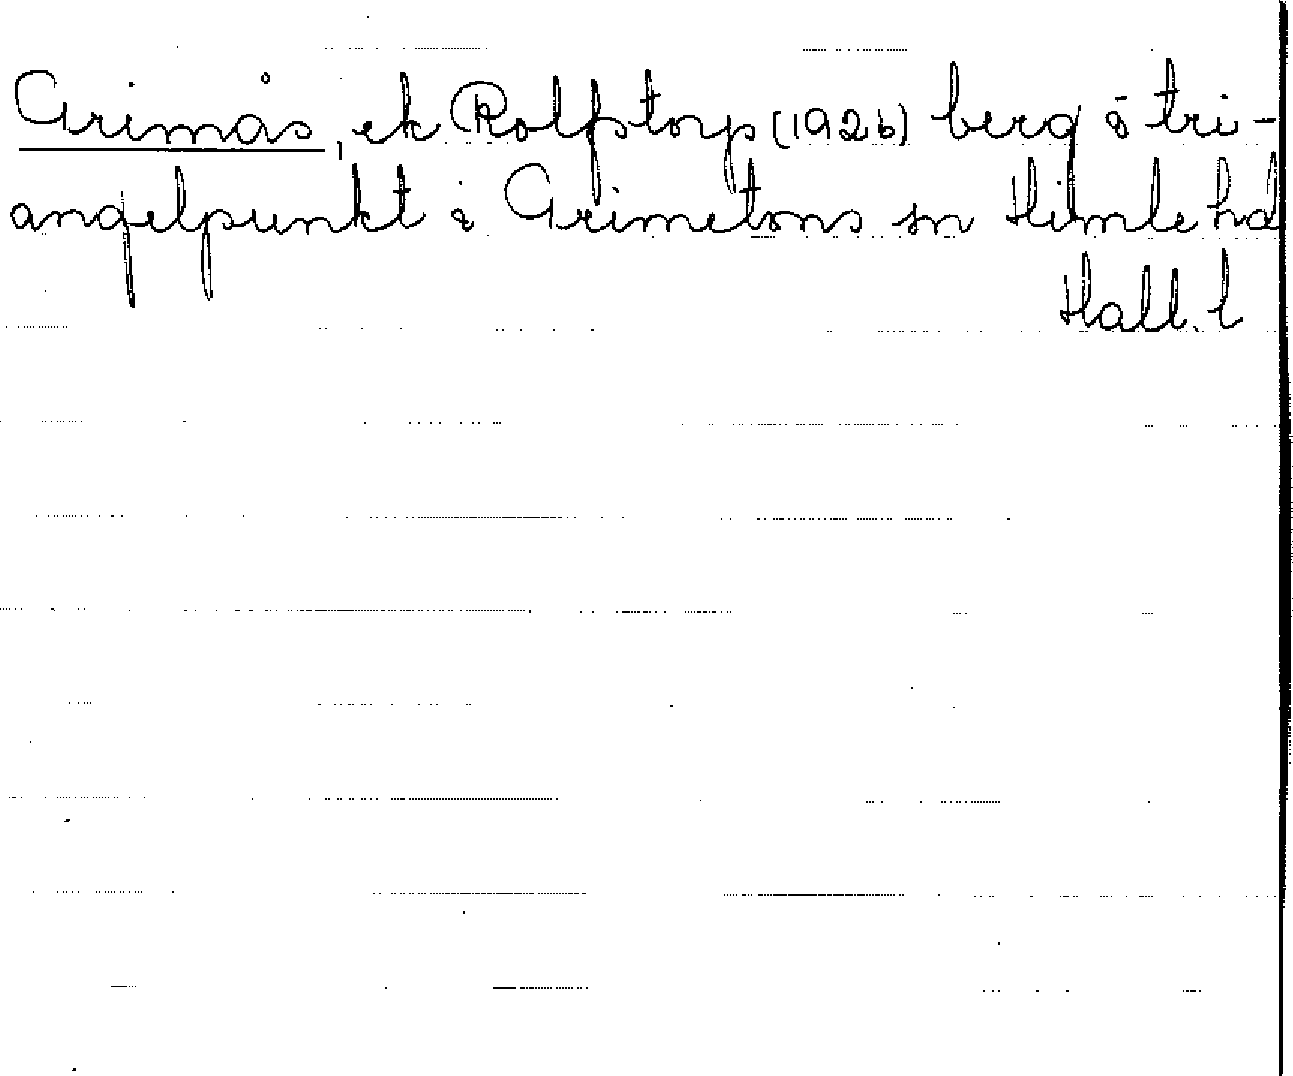 Grimås, ek Rolfstorp (1926) berg o tri-
angelpunkt i Grimetons sn Himle hd
Hall. l